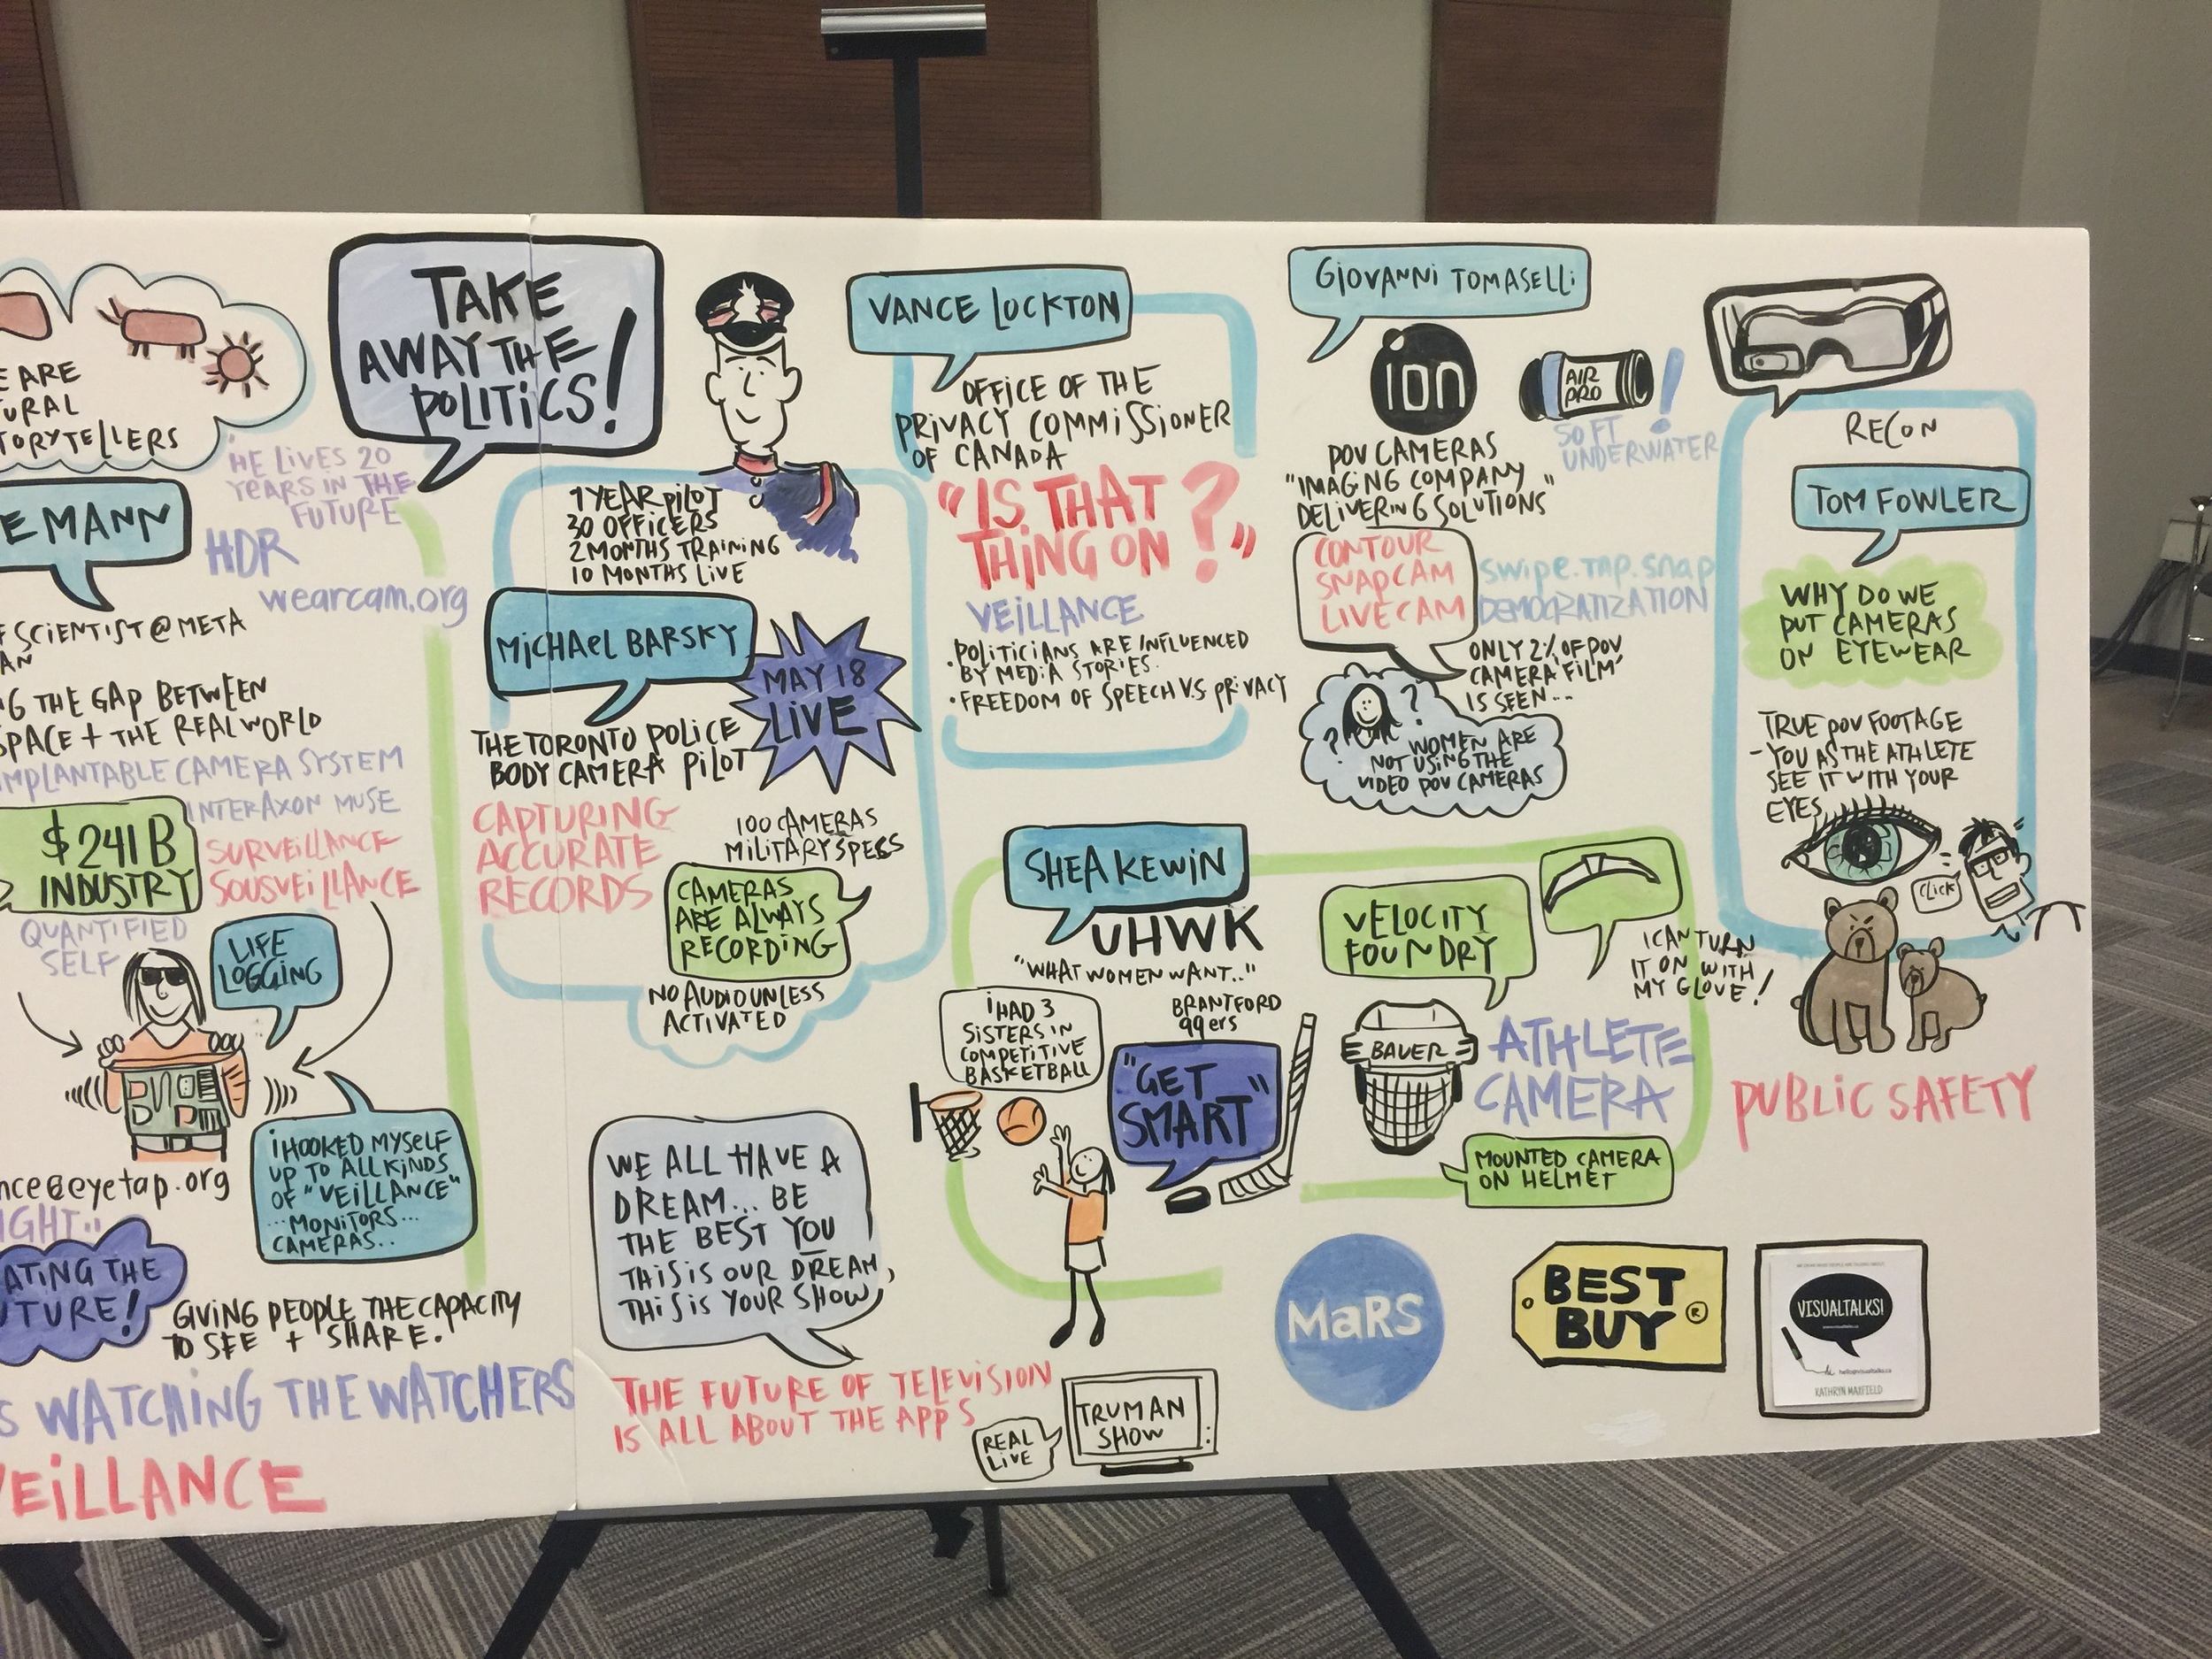 ARE
URAL
TORYTELLERS
"HE LIVES 20
YEARS IN THE
FUTURE
E MANN
HDR
wearcam.org
SCIENTIST @ META
AN
G THE GAP BETWEEN
SPACE + THE REAL WORLD
IMPLANTABLE CAMERA SYSTEM
INTERAXON MUSE
$241B
INDUSTRY
SURVEILLANCE
SOUSVEILLANCE
QUANTIFIED
SELF
LIFE
LOGGING
I HOOKED MYSELF
UP TO ALL KINDS
OF "VEILLANCE"
...MONITORS...
CAMERAS..
nce@eyetap.org
IGHT..
ATING THE
UTURE!
GIVING PEOPLE THE CAPACITY
TO SEE + SHARE.
S WATCHING THE WATCHERS
VEILLANCE
TAKE
AWAY THE
POLITICS!
1 YEAR PILOT
30 OFFICERS
2 MONTHS TRAINING
10 MONTHS LIVE
MICHAEL BARSKY
MAY 18
LIVE
THE TORONTO POLICE
BODY CAMERA PILOT
CAPTURING
ACCURATE
RECORDS
100 CAMERAS
MILITARY SPECS
CAMERAS
ARE ALWAYS
RECORDING
NO AUDIO UNLESS
ACTIVATED
WE ALL HAVE A
DREAM... BE
THE BEST YOU
THIS IS OUR DREAM,
THIS IS YOUR SHOW,
THE FUTURE OF TELEVISION
IS ALL ABOUT THE APPS
REAL
LIVE
TRUMAN
SHOW
VANCE LOCKTON
OFFICE OF THE
PRIVACY COMMISSIONER
OF CANADA
"IS THAT
THING ON?"
VEILLANCE
• POLITICIANS ARE INFLUENCED
BY MEDIA STORIES.
• FREEDOM OF SPEECH V.S PRIVACY
GIOVANNI TOMASELLI
ion
AIR
PRO
!
50 FT
UNDERWATER
POV CAMERAS
"IMAGING COMPANY
DELIVERING SOLUTIONS"
CONTOUR
SNAPCAM
LIVECAM
SWIPE.TAP.SNAP
DEMOCRATIZATION
ONLY 2% OF POV
CAMERA 'FILM'
IS SEEN...
? ?
WOMEN ARE
NOT USING THE
VIDEO POV CAMERAS
SHEA KEWIN
UHWK
"WHAT WOMEN WANT.."
I HAD 3
SISTERS IN
COMPETITIVE
BASKETBALL
BRANTFORD
99ers
"GET
SMART"
VELOCITY
FOUNDRY
BAUER
ATHLETE
CAMERA
MOUNTED CAMERA
ON HELMET
RECON
TOM FOWLER
WHY DO WE
PUT CAMERAS
ON EYEWEAR
TRUE POV FOOTAGE
- YOU AS THE ATHLETE
SEE IT WITH YOUR
EYES
CLICK
I CAN TURN
IT ON WITH
MY GLOVE!
PUBLIC SAFETY
MaRS
BEST
BUY ®
VISUALTALKS!
KATHRYN MAXFIELD